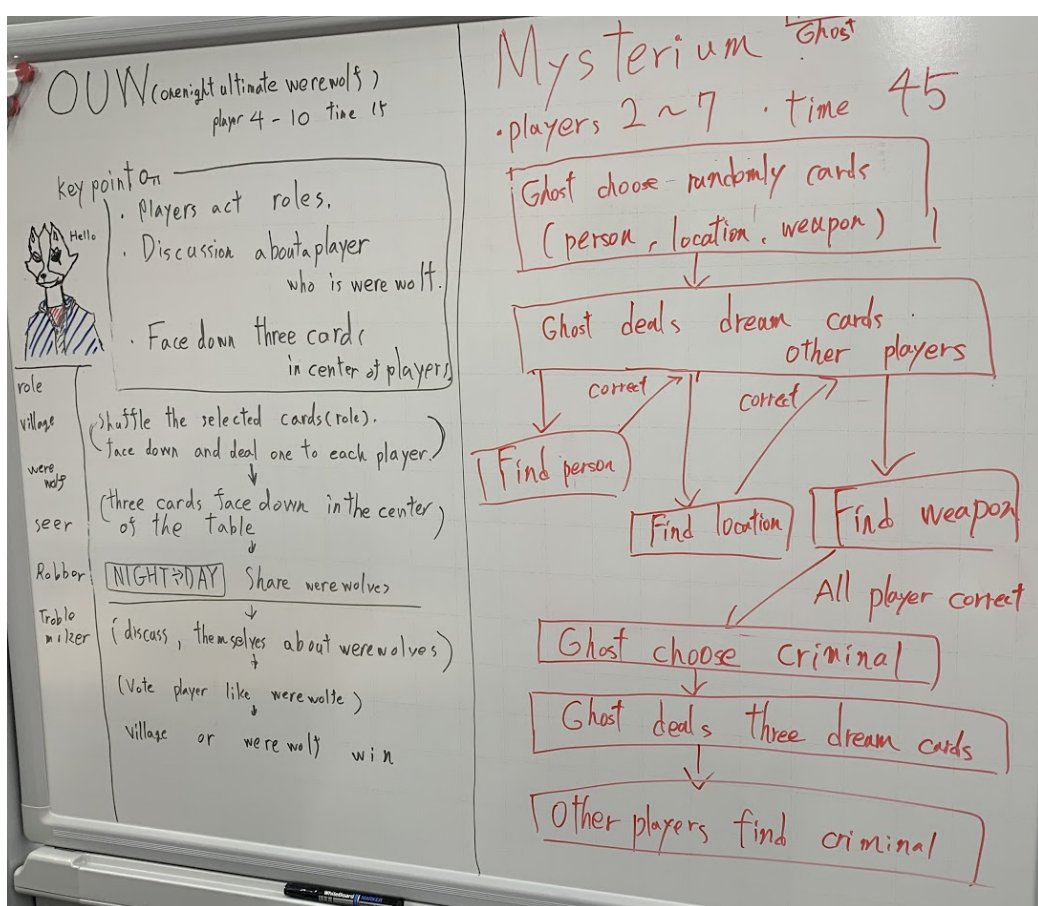 OUW (onenight ultimate werewolf)
player 4 - 10 time 15
key point on
Hello
· Players act roles.
· Discussion about a player
who is werewolf.
· Face down three cards
in center of players.
role
village
were
wolf
seer
Robber
Troble
maker
(shuffle the selected cards (role).
face down and deal one to each player.)
(three cards face down in the center
of the table)
NIGHT⇒DAY Share werewolves
(discuss, themselves about werewolves)
(Vote player like werewolfe)
village or werewolf win
Mysterium Ghost
· players 2 ~ 7 · time 45
Ghost choose randomly cards
(person, location, weapon)
Ghost deals dream cards
other players
correct
correct
Find person
Find location
Find weapon
All player correct
Ghost choose criminal
Ghost deals three dream cards
Other players find criminal
WhiteBoard MARKER